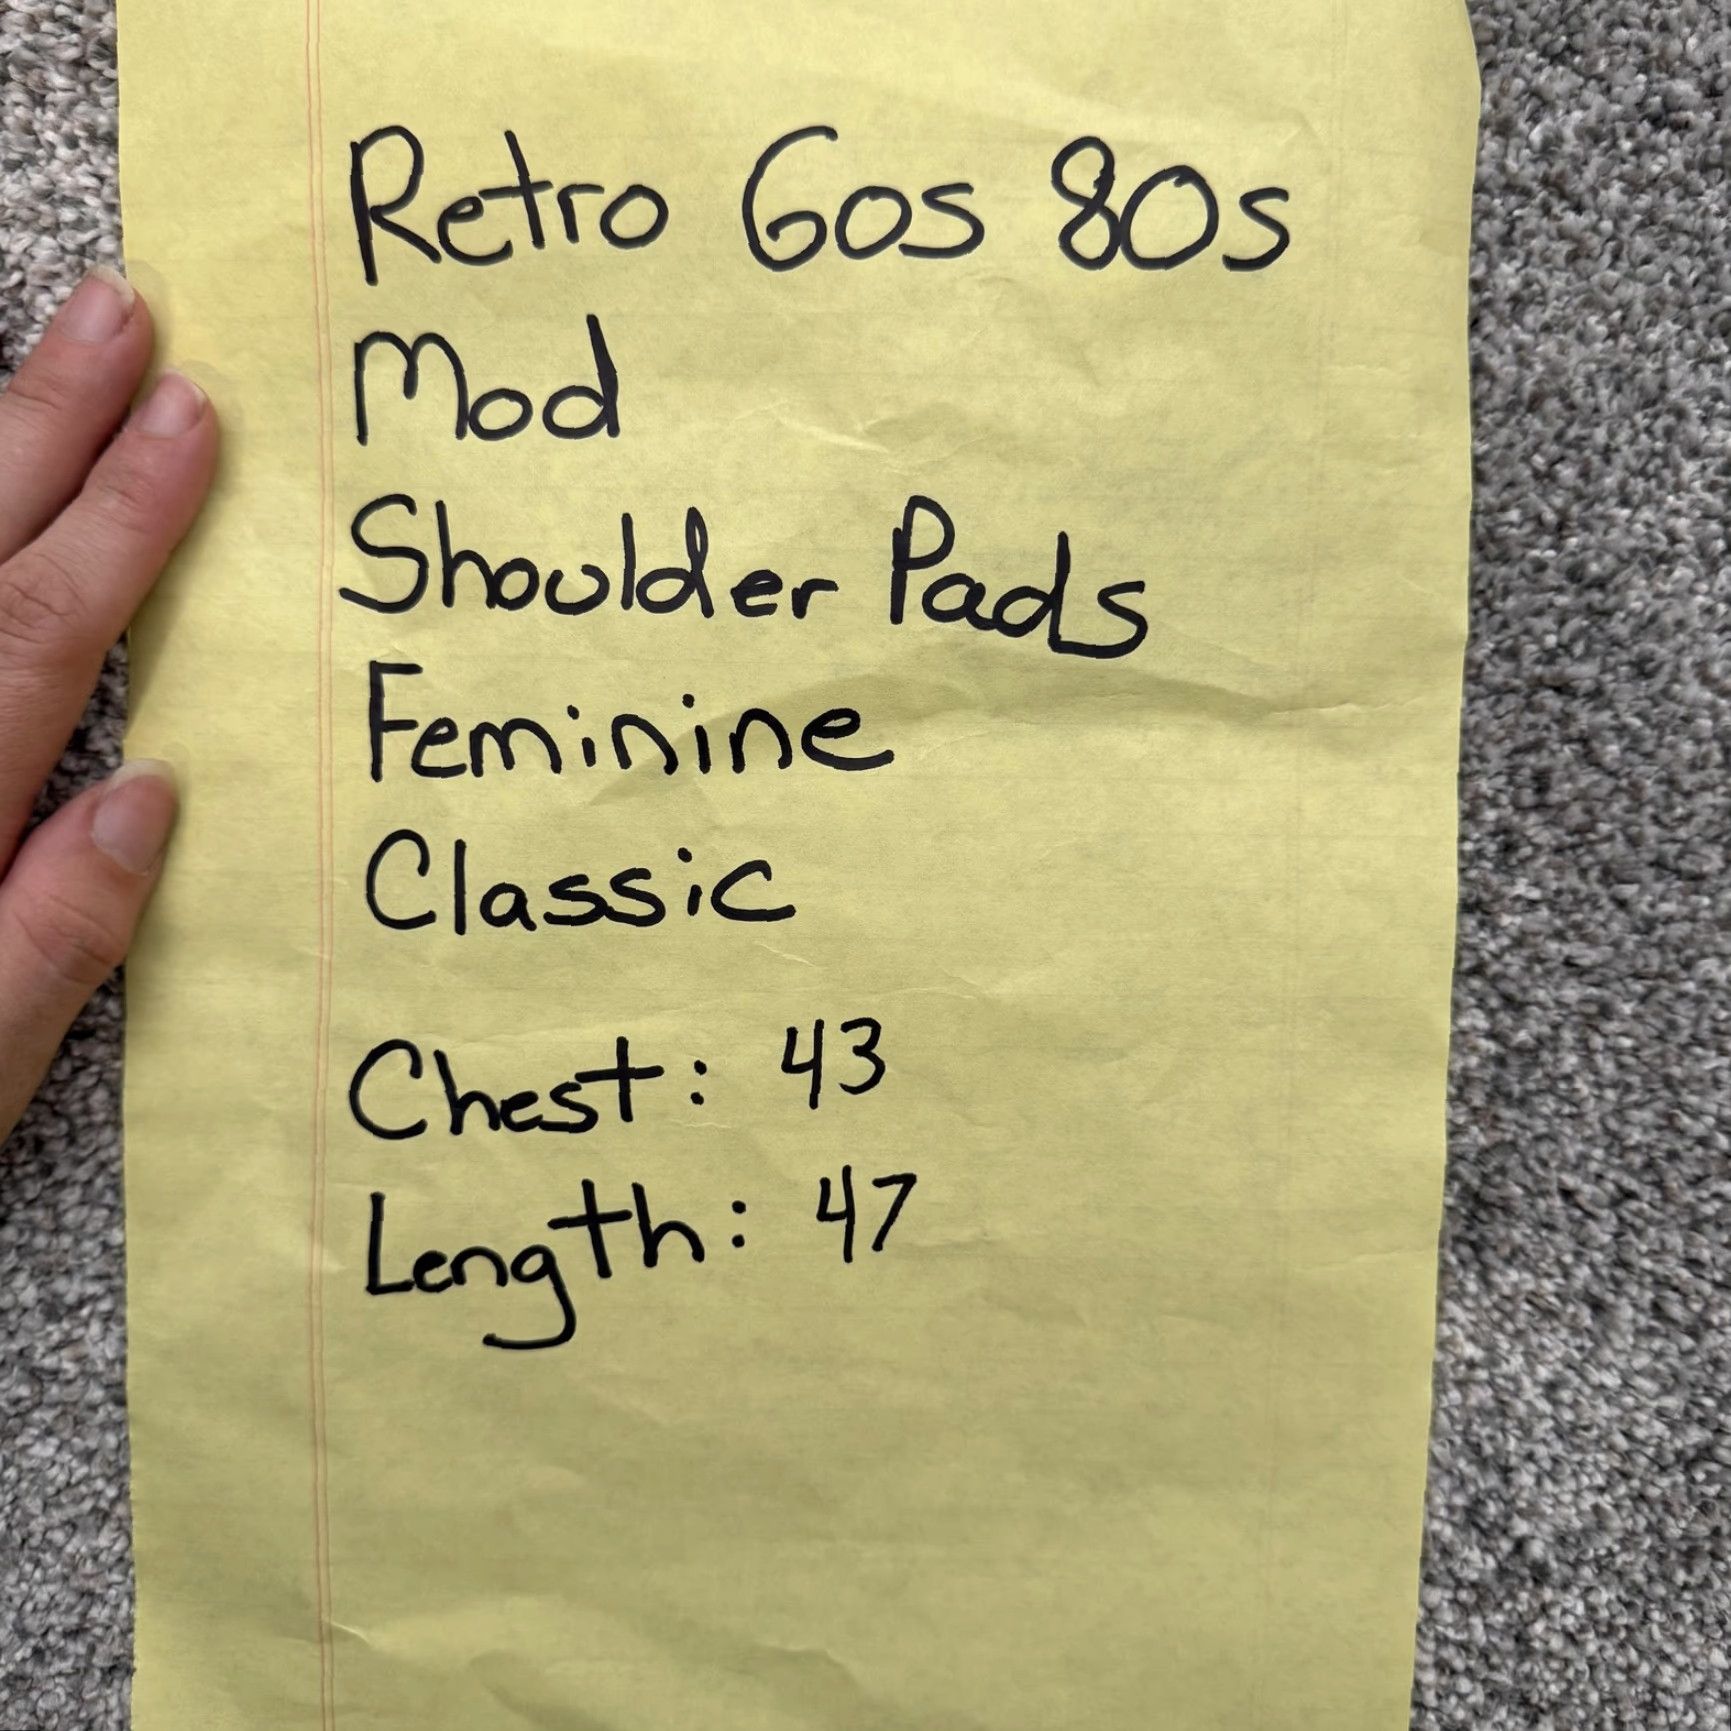 Retro 60s 80s
Mod
Shoulder Pads
Feminine
Classic
Chest: 43
Length: 47